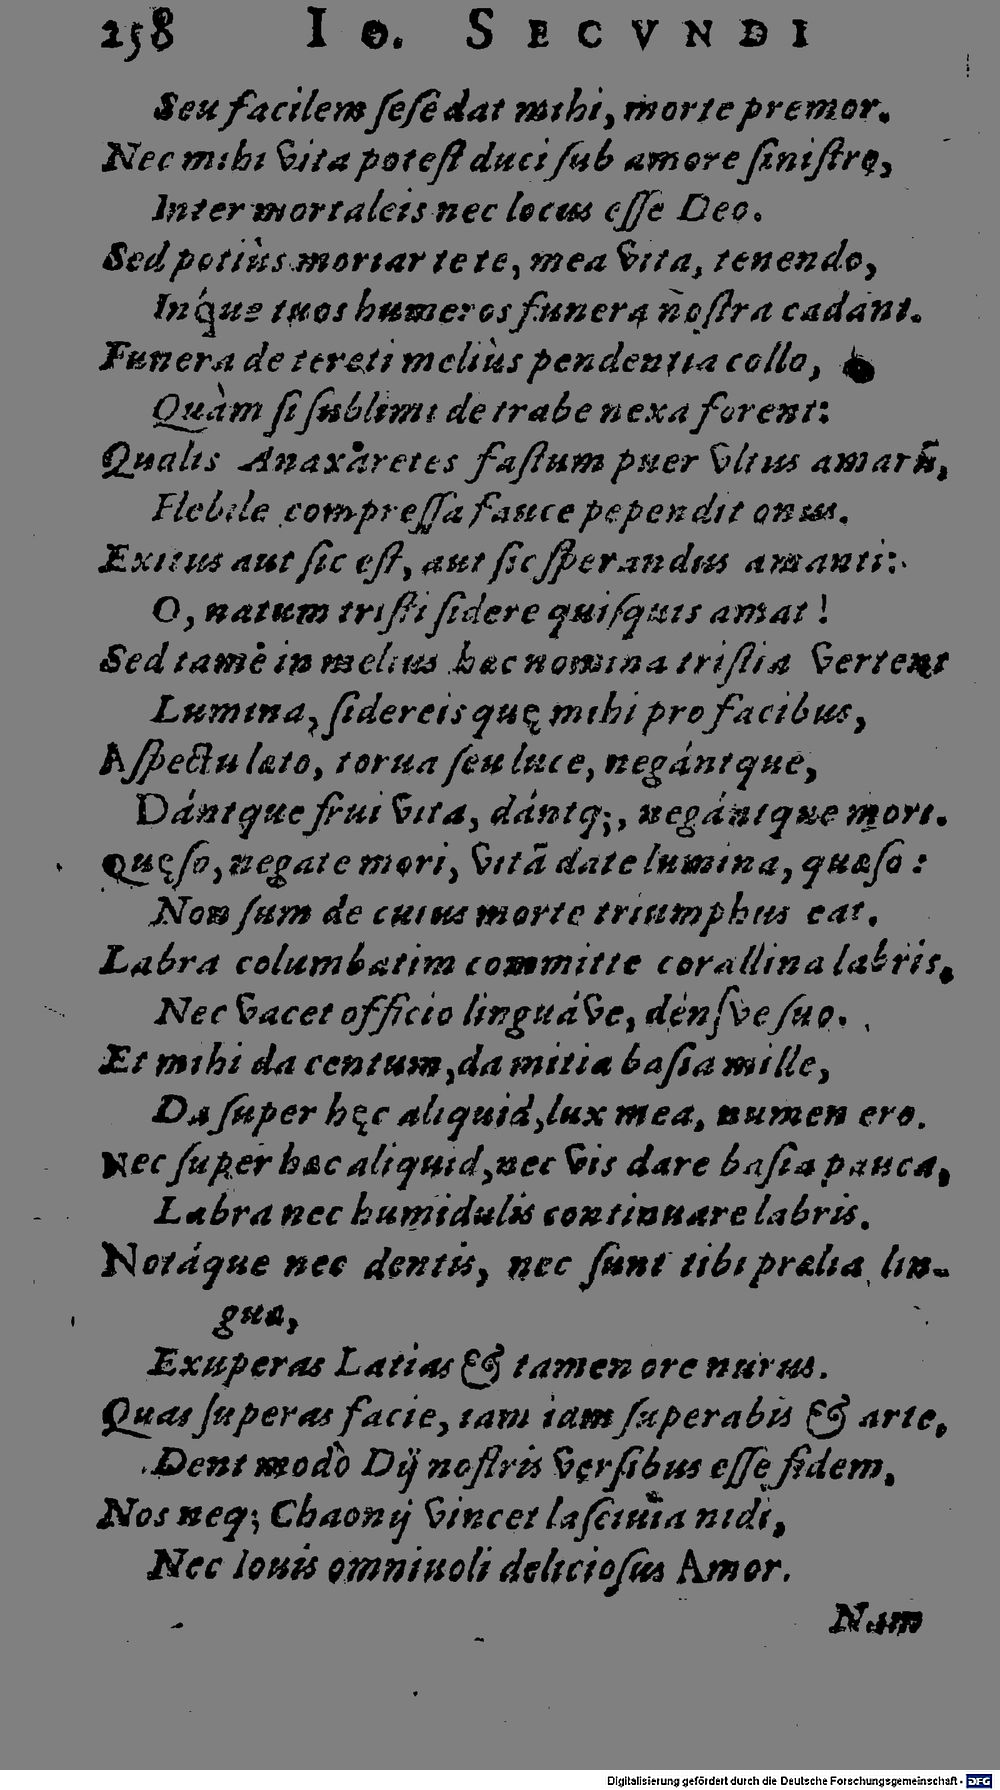 258 IO. SECVNDI
Seu facilem sesê dat mihi, morte premor.
Nec mihi vita potest duci sub amore sinistro,
Inter mortaleis nec locus esse Deo.
Sed potiùs moriar te te, mea vita, tenendo,
Inq́ue tuos humeros funera nostra cadant.
Funera de tereti meliùs pendentia collo,
Quàm si sublimi de trabe nexa forent:
Qualis Anaxaretes fastum puer vltus amarũ,
Flebile compressa fauce pependit onus.
Exitus aut sic est, aut sic sperandus amanti:
O, natum tristi sidere quisquis amat!
Sed tamē in melius hæc nomina tristia vertent
Lumina, sidereis quę mihi pro facibus,
Aspectu læto, torua seu luce, negántque,
Dántque frui vita, dántq;, negántque mori.
Quęso, negate mori, vitã date lumina, quæso:
Non sum de cuius morte triumphus eat.
Labra columbatim committe corallina labris,
Nec vacet officio linguáve, dénsve suo.
Et mihi da centum, da mitia basia mille,
Da super hęc aliquid, lux mea, numen ero.
Nec super hæc aliquid, nec vis dare basia pauca,
Labra nec humidulis continuare labris.
Notáque nec dentis, nec sunt tibi prælia lin-
guæ,
Exuperas Latias & tamen ore nurus.
Quas superas facie, iam iam superabis & arte,
Dent modò Dij nostris versibus esse fidem,
Nos neq; Chaonij vincet lasciuia nidi,
Nec Iouis omniuoli deliciosus Amor.
Nam
Digitalisierung gefördert durch die Deutsche Forschungsgemeinschaft - DFG